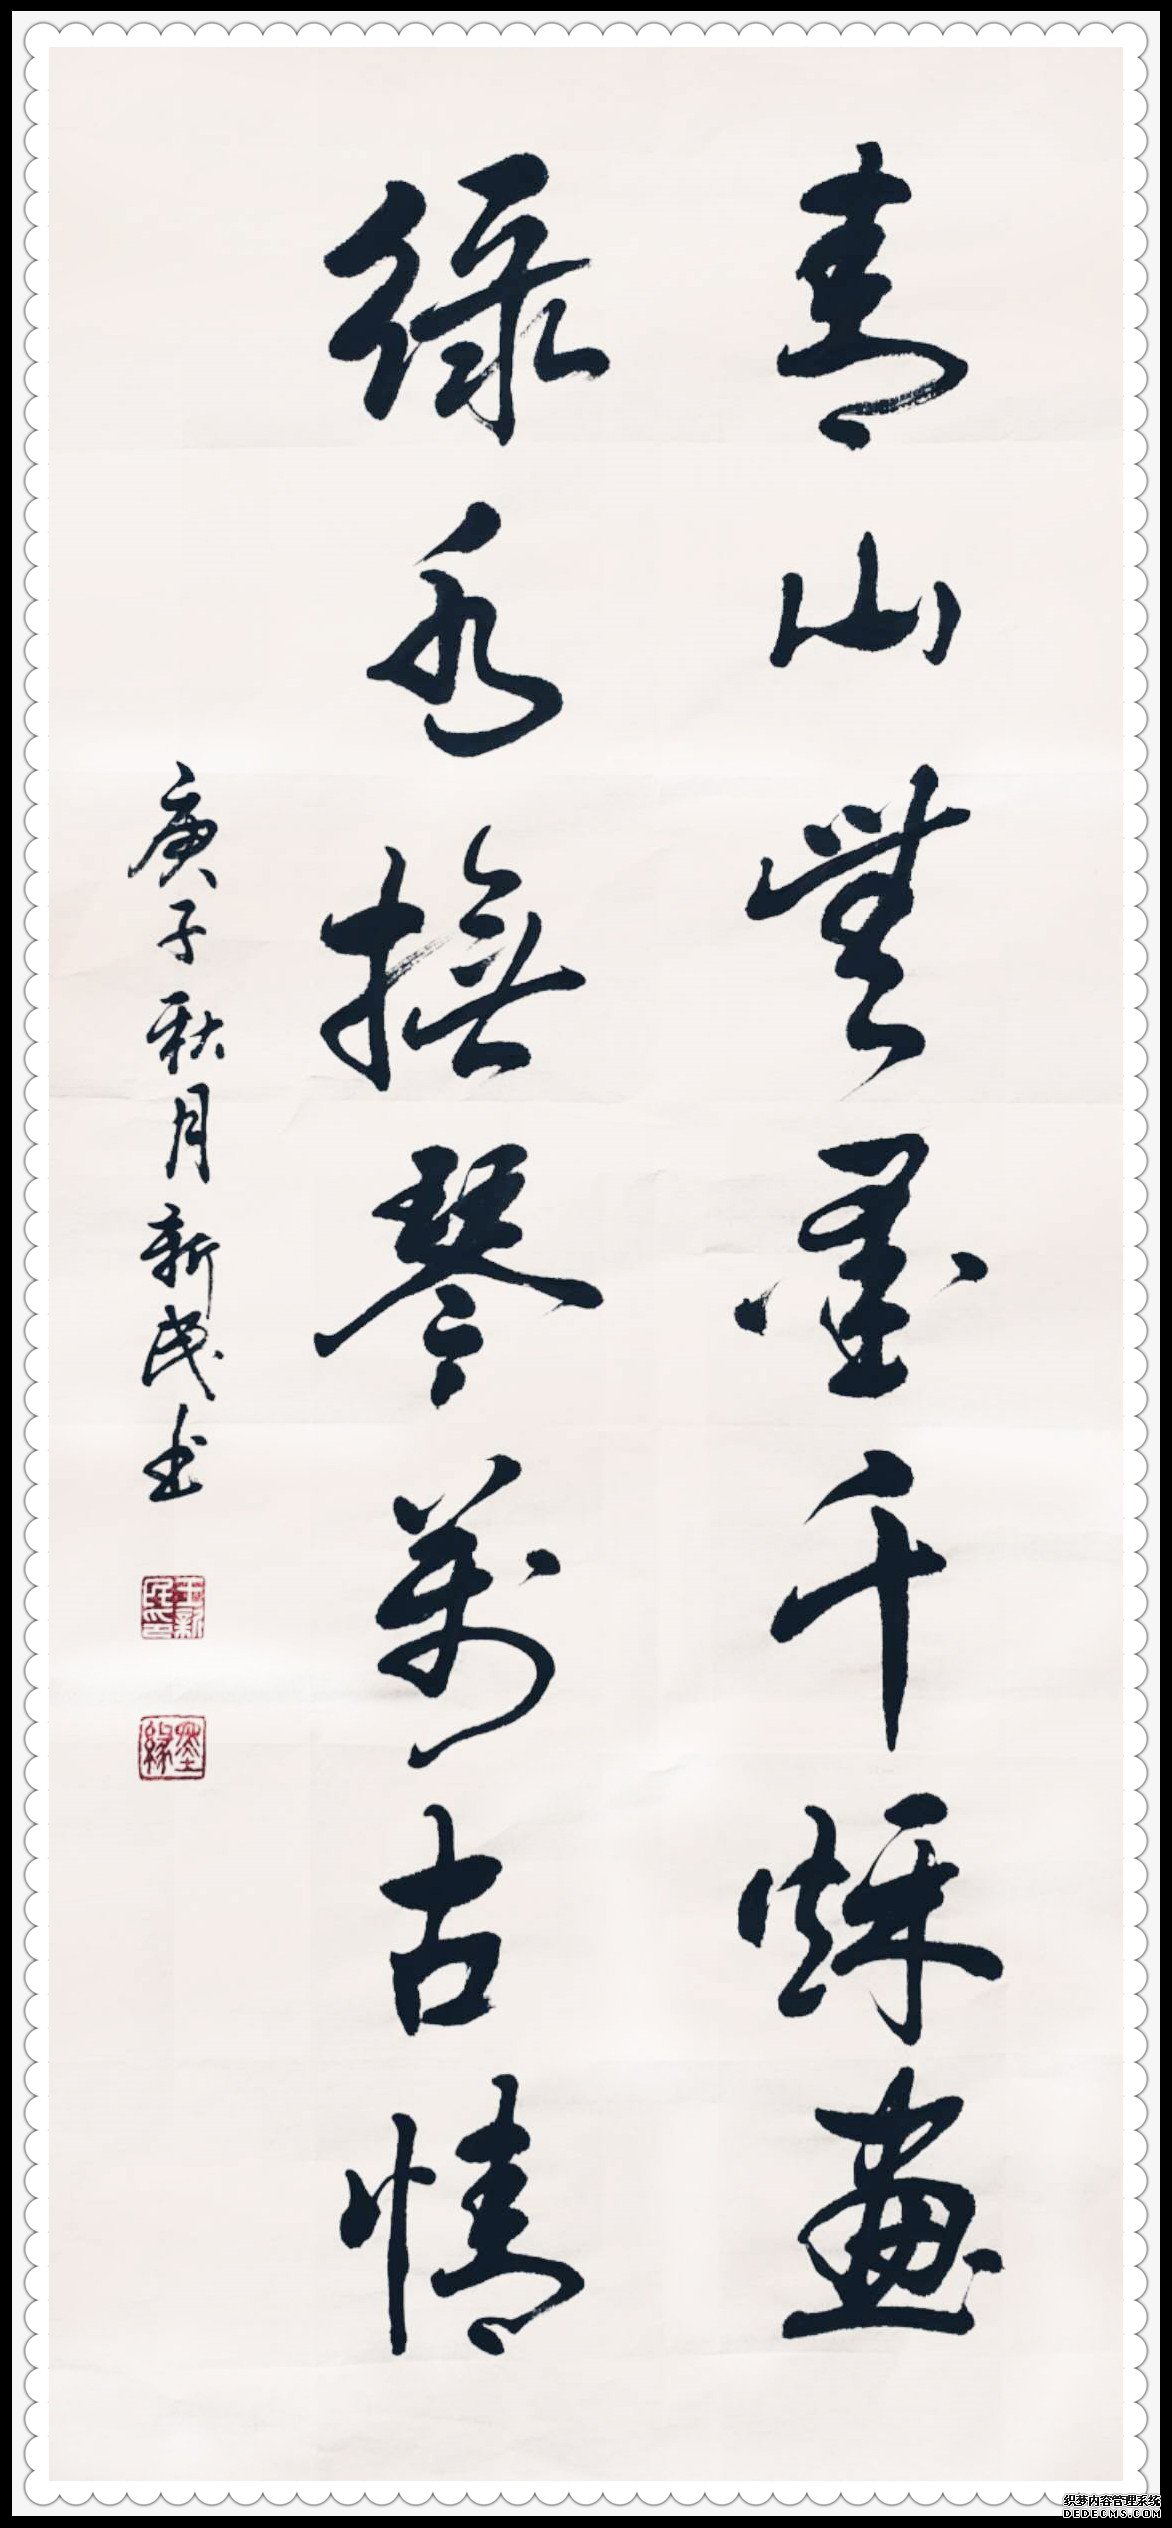 青山無墨千秌畫
綠水撫琴萬古情
庚子秋月新民书
王新民印
墨緣
织梦内容管理系统
DEDECMS.COM